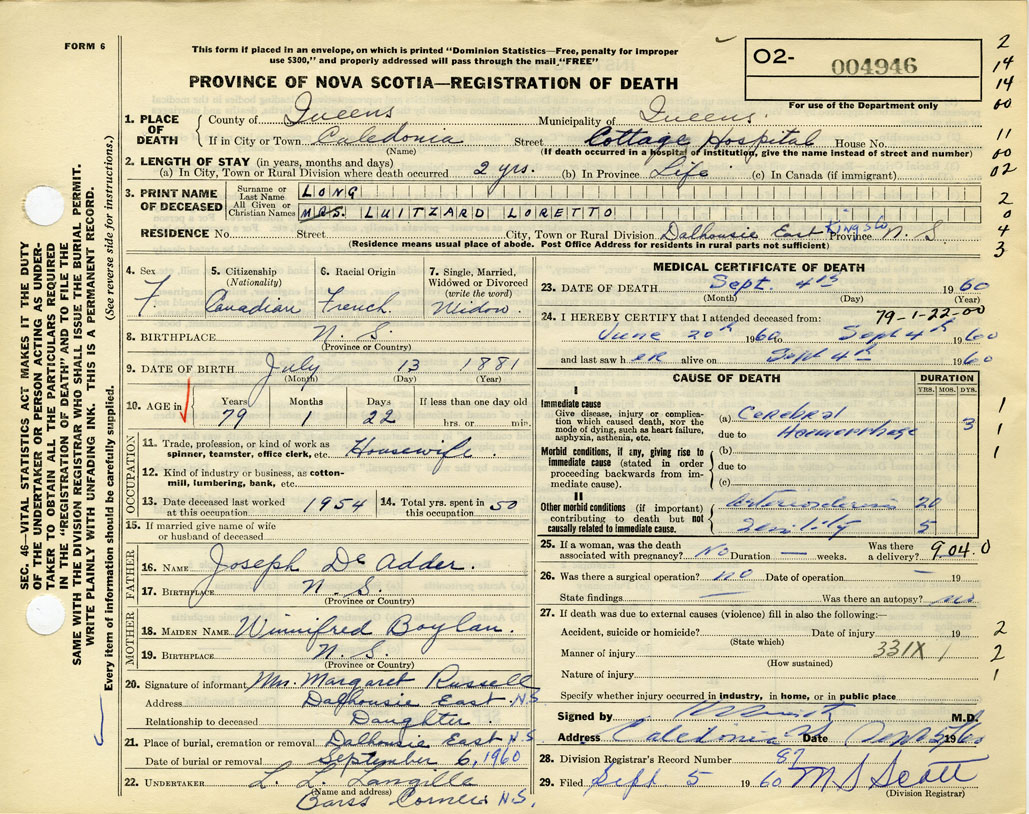 FORM 6
This form if placed in an envelope, on which is printed "Dominion Statistics—Free, penalty for improper
use $300," and properly addressed will pass through the mail "FREE"
PROVINCE OF NOVA SCOTIA—REGISTRATION OF DEATH
O2- 004946
For use of the Department only
2
14
14
00
11
00
02
2
0
4
3
SEC. 46—VITAL STATISTICS ACT MAKES IT THE DUTY
OF THE UNDERTAKER OR PERSON ACTING AS UNDER-
TAKER TO OBTAIN ALL THE PARTICULARS REQUIRED
IN THE "REGISTRATION OF DEATH" AND TO FILE THE
SAME WITH THE DIVISION REGISTRAR WHO SHALL ISSUE THE BURIAL PERMIT.
WRITE PLAINLY WITH UNFADING INK. THIS IS A PERMANENT RECORD.
Every item of information should be carefully supplied. (See reverse side for instructions.)
1. PLACE OF DEATH County of Queens Municipality of Queens
If in City or Town Caledonia Street Cottage Hospital House No.
(Name) (If death occurred in a hospital or institution, give the name instead of street and number)
2. LENGTH OF STAY (in years, months and days)
(a) In City, Town or Rural Division where death occurred 2 yrs. (b) In Province Life (c) In Canada (if immigrant)
3. PRINT NAME OF DECEASED Surname or Last Name LONG
All Given or Christian Names MRS. LUITZARD LORETTO
RESIDENCE No. Street City, Town or Rural Division Dalhousie East Kings Co Province N. S
(Residence means usual place of abode. Post Office Address for residents in rural parts not sufficient)
4. Sex F.
5. Citizenship (Nationality) Canadian
6. Racial Origin French
7. Single, Married, Widowed or Divorced (write the word) Widow.
8. BIRTHPLACE N. S.
(Province or Country)
9. DATE OF BIRTH July 13 1881
(Month) (Day) (Year)
10. AGE in Years 79 Months 1 Days 22 If less than one day old hrs. or min.
OCCUPATION
11. Trade, profession, or kind of work as spinner, teamster, office clerk, etc. Housewife.
12. Kind of industry or business, as cotton-mill, lumbering, bank, etc.
13. Date deceased last worked at this occupation 1954
14. Total yrs. spent in this occupation 50
15. If married give name of wife or husband of deceased
FATHER
16. NAME Joseph De Adder.
17. BIRTHPLACE N. S.
(Province or Country)
MOTHER
18. MAIDEN NAME Winnifred Boylan.
19. BIRTHPLACE N. S.
(Province or Country)
20. Signature of informant Mrs. Margaret Russell
Address Dalhousie East N.S
Relationship to deceased Daughter.
21. Place of burial, cremation or removal Dalhousie East N.S
Date of burial or removal September 6, 1960
22. UNDERTAKER L. L. Langille
(Name and address)
Barss Corner N.S.
MEDICAL CERTIFICATE OF DEATH
23. DATE OF DEATH Sept. 4th 1960
(Month) (Day) (Year)
24. I HEREBY CERTIFY that I attended deceased from: 79-1-22-00
June 20th 1960 to Sept 4th 1960
and last saw her alive on Sept 4th 1960
CAUSE OF DEATH
DURATION
YRS. MOS. DYS.
I
Immediate cause
Give disease, injury or complica-
tion which caused death, NOT the
mode of dying, such as heart failure,
asphyxia, asthenia, etc.
(a) Cerebral 3
due to Haemorrhage
Morbid conditions, if any, giving rise to
immediate cause (stated in order
proceeding backwards from im-
mediate cause).
(b)
due to
(c)
II
Other morbid conditions (if important)
contributing to death but not
causally related to immediate cause.
Arteriosclerosis 20
Senility 5
1
1
1
25. If a woman, was the death associated with pregnancy? No Duration — weeks. Was there a delivery? 9.04.0
26. Was there a surgical operation? no Date of operation — 19
State findings — Was there an autopsy? no
27. If death was due to external causes (violence) fill in also the following:—
Accident, suicide or homicide? Date of injury 19
(State which)
Manner of injury 331X
(How sustained)
Nature of injury
2
2
1
Specify whether injury occurred in industry, in home, or in public place
Signed by M.D.
Address Caledonia Date Sept 5 1960
28. Division Registrar's Record Number 87
29. Filed Sept. 5 1960 M S Scott
(Division Registrar)